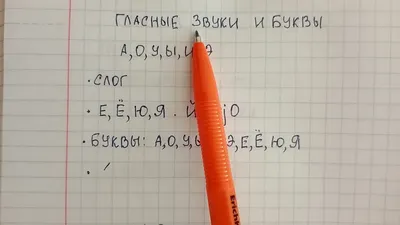 ГЛАСНЫЕ ЗВУКИ И БУКВЫ
А,О,У,Ы,И Э
· СЛОГ
· Е,Ё,Ю,Я · Й jО
· БУКВЫ: А,О,У,Ы Э,Е,Ё,Ю,Я